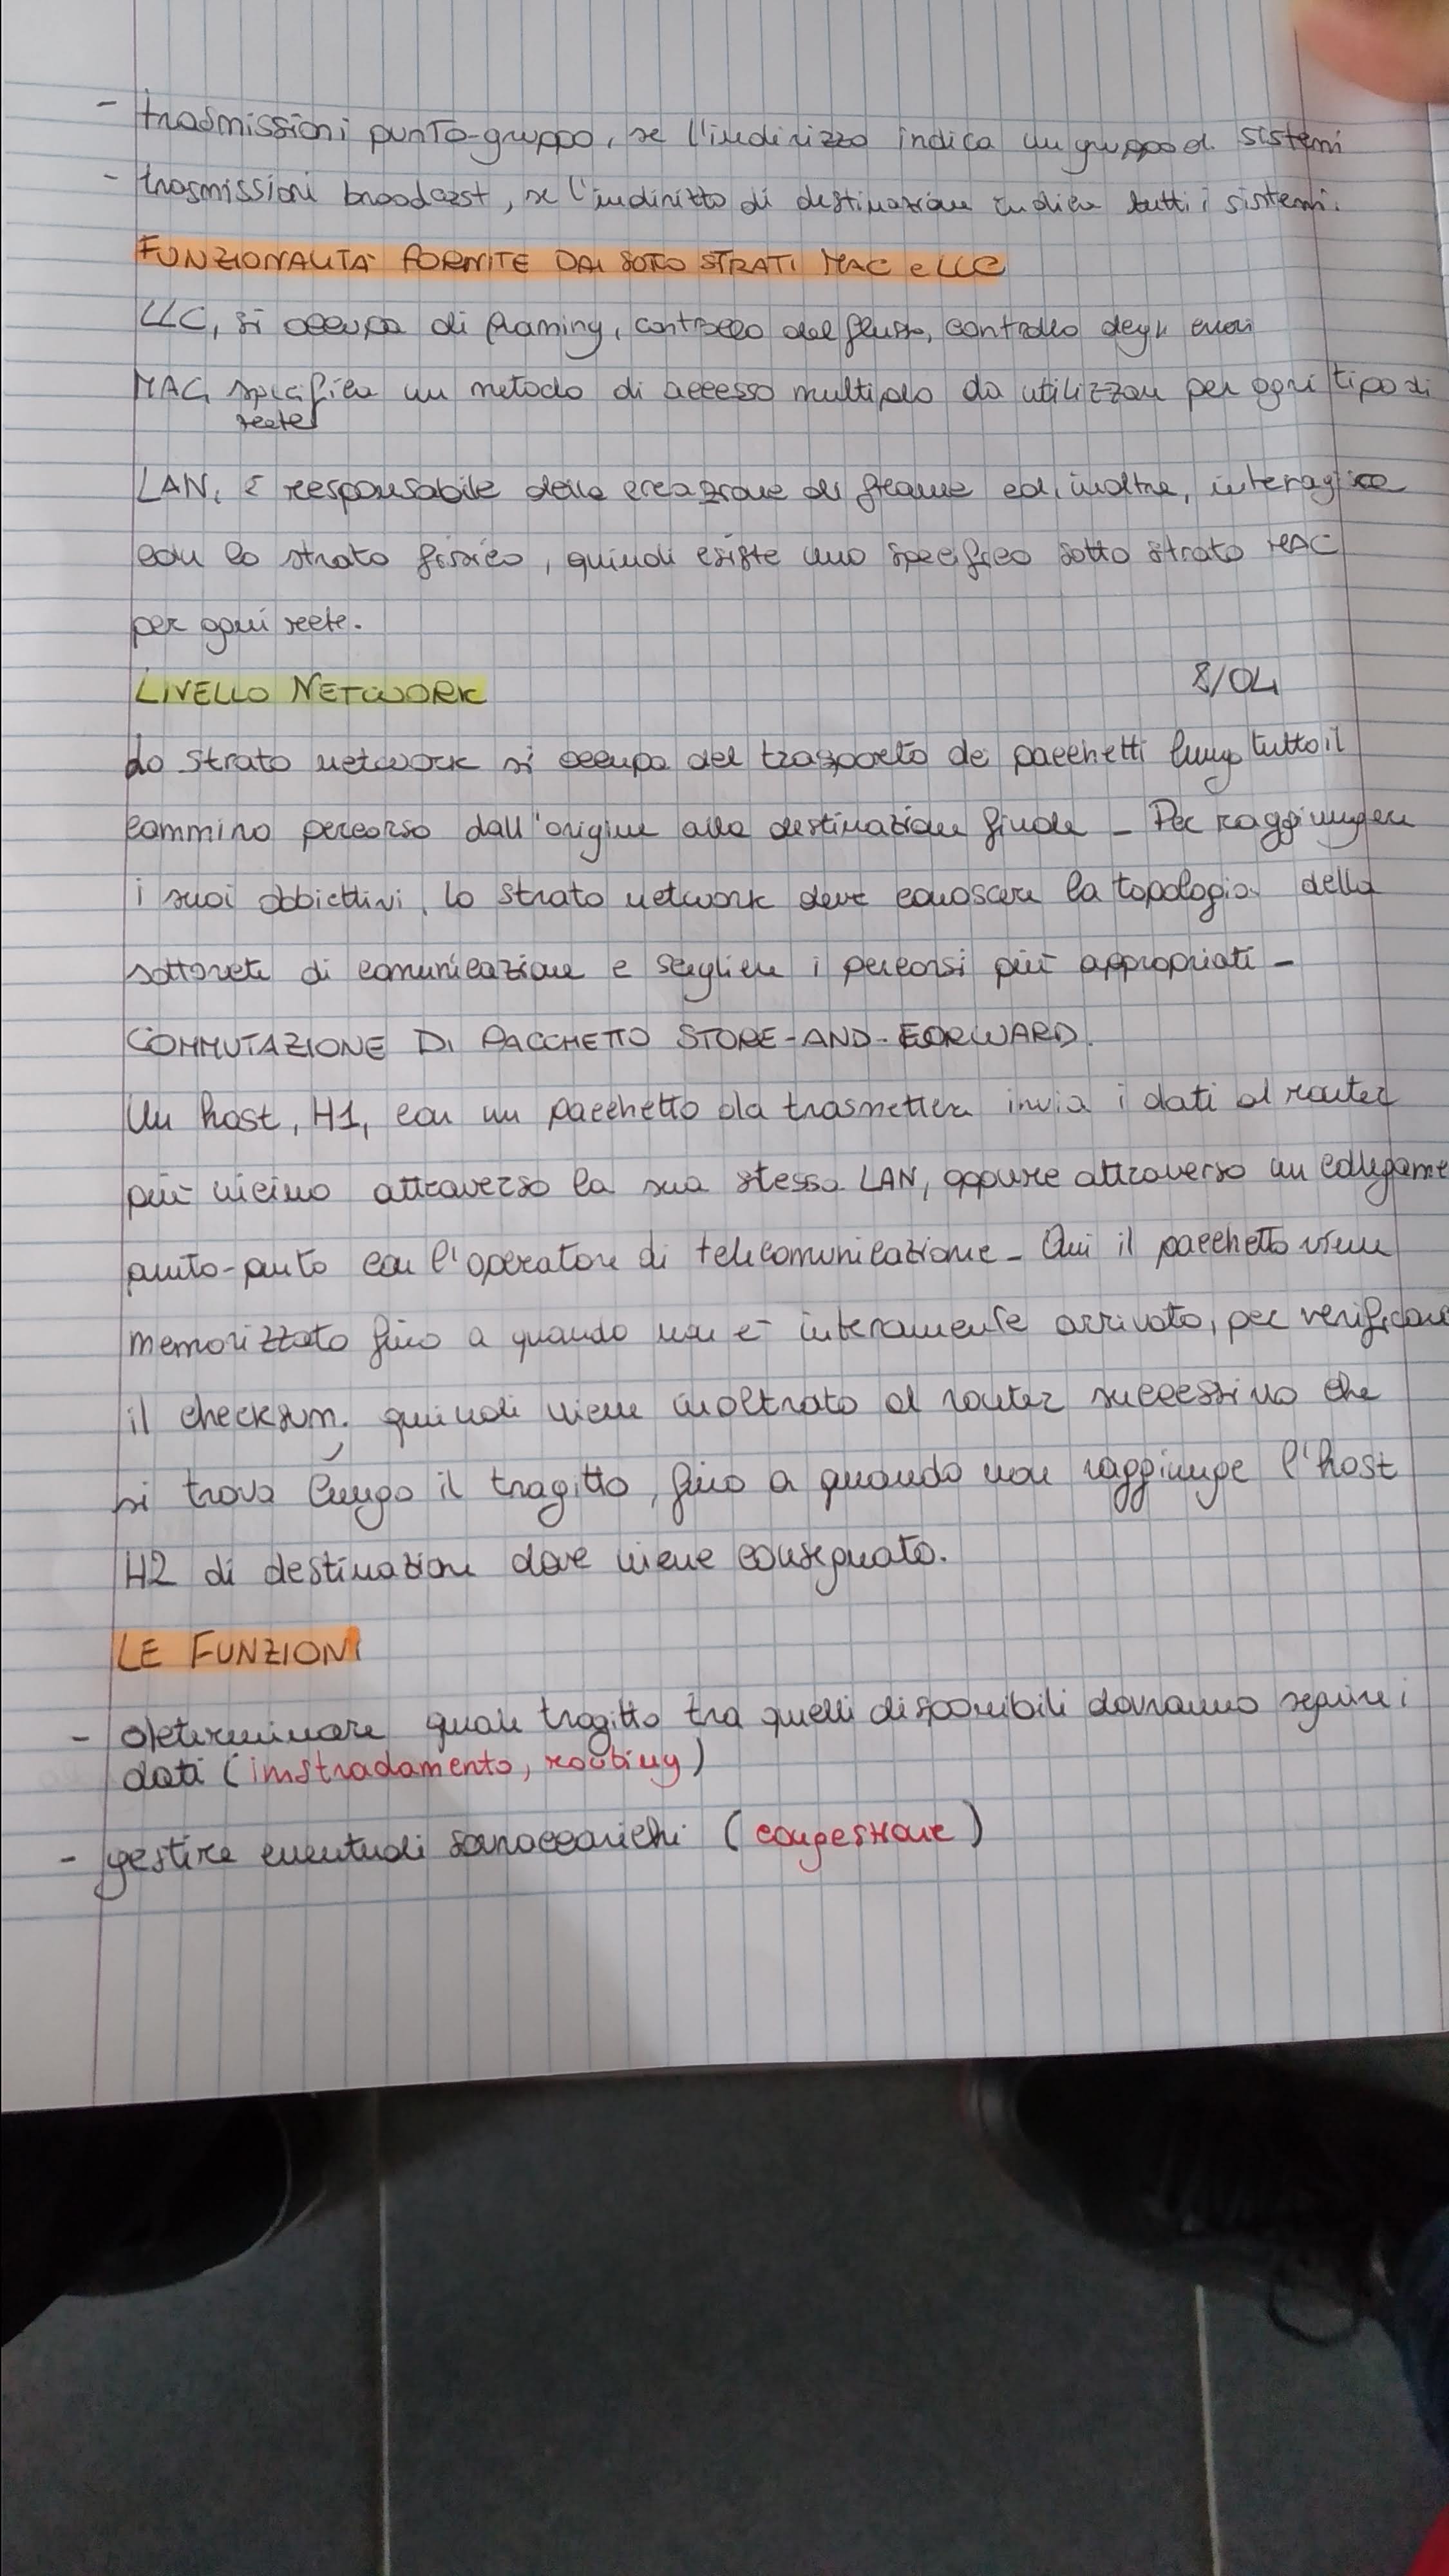 - trasmissioni punto-gruppo, se l'indirizzo indica un gruppo di sistemi
- trasmissioni broadcast, se l'indirizzo di destinazione indica tutti i sistemi.
FUNZIONALITÀ FORNITE DAI SOTTO STRATI MAC e LLC
LLC, si occupa di framing, controllo del flusso, controllo degli errori
MAC, specifica un metodo di accesso multiplo da utilizzare per ogni tipo di
rete
LAN, è responsabile della creazione di frame ed, inoltre, interagisce
con lo strato fisico, quindi esiste uno specifico sotto strato MAC
per ogni rete.
LIVELLO NETWORK 8/04
Lo strato network si occupa del trasporto dei pacchetti lungo tutto il
cammino percorso dall'origine alla destinazione finale - Per raggiungere
i suoi obbiettivi, lo strato network deve conoscere la topologia della
sottorete di comunicazione e scegliere i percorsi più appropriati -
COMMUTAZIONE DI PACCHETTO STORE-AND-FORWARD.
Un host, H1, con un pacchetto da trasmettere invia i dati al router
più vicino attraverso la sua stessa LAN, oppure attraverso un collegame
punto-punto con l'operatore di telecomunicazione - Qui il pacchetto viene
memorizzato fino a quando non è interamente arrivato, per verificare
il checksum. quindi viene inoltrato al router successivo che
si trova lungo il tragitto, fino a quando non raggiunge l'host
H2 di destinazione dove viene consegnato.
LE FUNZIONI
- determinare quale tragitto tra quelli disponibili dovranno seguire i
dati (instradamento, routing)
- gestire eventuali sovraccarichi (congestione)